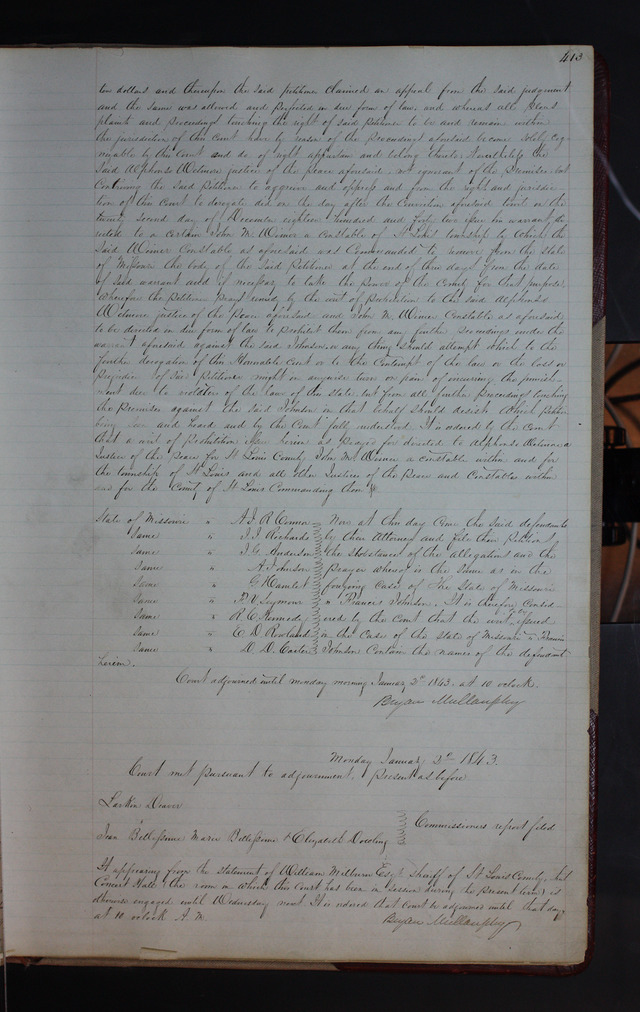 413
ten dollars and thereupon the said petitioner claimed an appeal from the said judgement
and the same was allowed and perfected in due form of law, and whereas all plaints
plaints and proceedings touching the right of said Petitioner to be and remain within
the jurisdiction of this Court have by reason of the proceedings aforesaid become solely cog
nizable by this Court and do of right appertain and belong thereto. Nevertheless the
said Alphonso Wetmore justice of the peace aforesaid, not ignorant of the Premises but
Contriving the said Petitioner to aggrieve and oppress and from the right and jurisdic
tion of this Court to derogate did on the day after the Conviction aforesaid to wit on the
twenty second day of December eighteen hundred and forty two issue his warrant di
rected to a certain John M. Wimer a Constable of St Louis township by which the
said Wimer Constable as aforesaid was Commanded to remove from the state
of Missouri the body of the said Petitioner at the end of three days from the date
of said warrant and if necessary to take the power of the County for that purpose,
Wherefore the Petitioner prays remedy by the writ of prohibition to the said Alphonso
Wetmore justice of the peace aforesaid and John M. Wimer Constable as aforesaid
to be directed in due form of law to prohibit them from any further proceedings under the
warrant aforesaid against the said Johnson, or any thing should attempt which to the
further derogation of this Honorable Court or to the Contempt of the law or the loss or
prejudice of said Petitioner might in anywise turn on pain of incurring the punish
ment due to violators of the law of this state, but from all further proceedings touching
the Premises against the said Johnson in that behalf should desist. Which petition
being seen and heard and by the Court fully understood. It is ordered by the Court
that a writ of Prohibition issue herein as prayed for directed to Alphonso Wetmore a
Justice of the Peace for St Louis County, John M. Wimer a constable within and for
the township of St Louis and all other Justices of the Peace and Constables within
and for the County of St Louis Commanding them &c
State of Missouri " A. J. R. Connor Now at this day Come the said defendants
Same " J. J. Richards by their Attorney and file their Petitions
Same " J. G. Anderson the substance of the allegations and the
Same " A. Johnson prayer whereof is the same as in the
Same " G. Hamlet foregoing case of The State of Missouri
Same " F. Y. Seymour vs Francis Johnson. It is therefore Consid-
Same " R. C. Kennedy ered by the Court that the writ issued
Same " E. D. Rowland in the Case of the State of Missouri vs Francis
Same " D. D. Carter Johnson Contain the names of the defendants
herein.
Court adjourned until monday morning January 2nd 1843. at 10 oclock.
Bryan Mullanphy
Monday January 2nd 1843.
Court met pursuant to adjournment. Present as before
Larkin Deaver
Commissioners report filed
Jean Bellessime Marie Bellessime & Elizabeth Dowling
It appearing from the statement of William Milburn Esqr sheriff of St Louis County, that
Concert Hall (the room in which this Court has been in session during the present term) is
otherwise engaged until Wednesday next. It is ordered that Court be adjourned until that day
at 10 oclock A.M.
Bryan Mullanphy